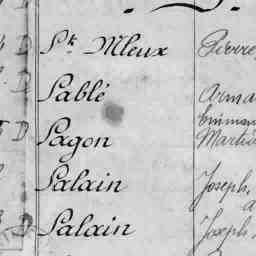 D St Mleux Pierre
D Sablé Arma
D Sagon Martin
Salain Joseph,
D Salain Joseph,